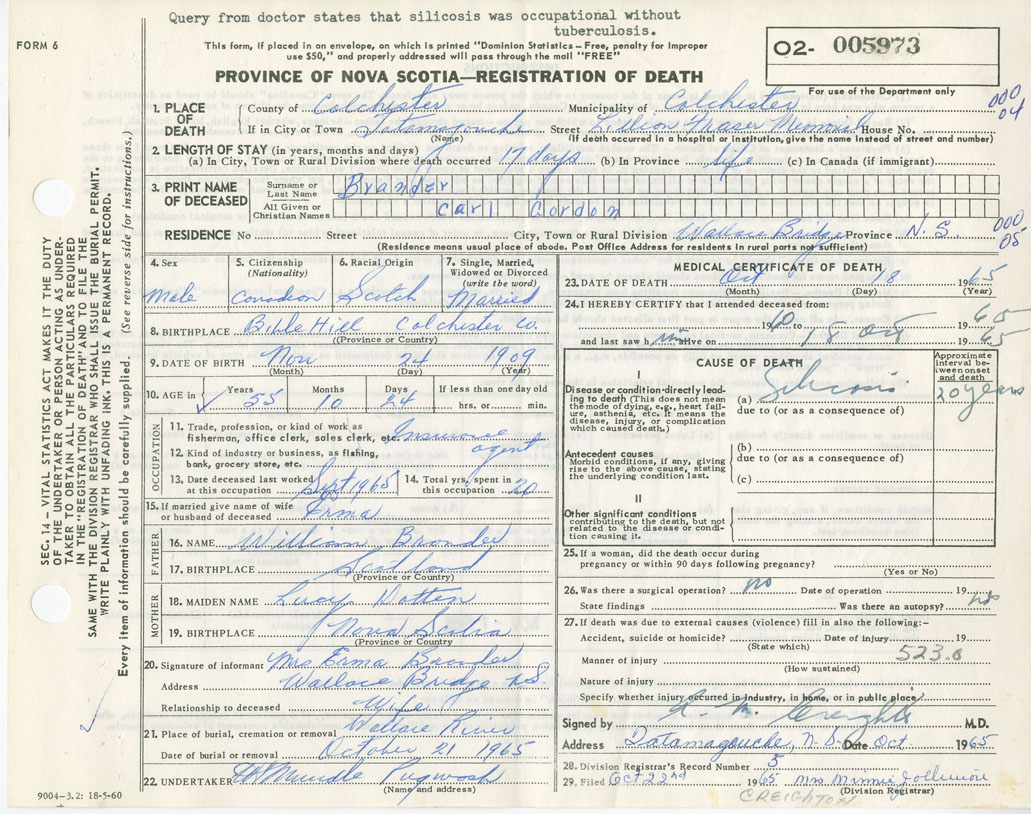 Query from doctor states that silicosis was occupational without
tuberculosis.
FORM 6
This form, if placed in an envelope, on which is printed "Dominion Statistics – Free, penalty for improper
use $50," and properly addressed will pass through the mail "FREE"
O2- 005973
For use of the Department only
PROVINCE OF NOVA SCOTIA—REGISTRATION OF DEATH
000
04
1. PLACE OF DEATH
County of Colchester Municipality of Colchester
If in City or Town Tatamagouche Street Lillian Fraser Memorial House No.
(Name) (If death occurred in a hospital or institution, give the name instead of street and number)
2. LENGTH OF STAY (in years, months and days)
(a) In City, Town or Rural Division where death occurred 17 days (b) In Province life (c) In Canada (if immigrant)
3. PRINT NAME OF DECEASED
Surname or Last Name Brander
All Given or Christian Names Carl Gordon
RESIDENCE No Street City, Town or Rural Division Wallace Bridge Province N.S.
000
05
(Residence means usual place of abode. Post Office Address for residents in rural parts not sufficient)
4. Sex Male
5. Citizenship (Nationality) Canadian
6. Racial Origin Scotch
7. Single, Married, Widowed or Divorced (write the word) Married
8. BIRTHPLACE Bible Hill Colchester Co.
(Province or Country)
9. DATE OF BIRTH Nov 24 1909
(Month) (Day) (Year)
10. AGE in Years 55 Months 10 Days 24 If less than one day old hrs. or min.
OCCUPATION
11. Trade, profession, or kind of work as fisherman, office clerk, sales clerk, etc. Insurance agent
12. Kind of industry or business, as fishing, bank, grocery store, etc.
13. Date deceased last worked at this occupation Sept 1965
14. Total yrs. spent in this occupation 20
15. If married give name of wife or husband of deceased Erma
FATHER
16. NAME William Brander
17. BIRTHPLACE Scotland
(Province or Country)
MOTHER
18. MAIDEN NAME Lucy
19. BIRTHPLACE Nova Scotia
(Province or Country)
20. Signature of informant Mrs Erma Brander
Address Wallace Bridge N.S.
Relationship to deceased Wife
21. Place of burial, cremation or removal Wallace River
Date of burial or removal October 21 1965
22. UNDERTAKER Pugwash
(Name and address)
MEDICAL CERTIFICATE OF DEATH
23. DATE OF DEATH Oct 18 1965
(Month) (Day) (Year)
24. I HEREBY CERTIFY that I attended deceased from:
1960 to 1965
and last saw him alive on 18 Oct 1965
CAUSE OF DEATH
Approximate interval between onset and death
I
Disease or condition directly leading to death (This does not mean the mode of dying, e.g., heart failure, asthenia, etc. It means the disease, injury, or complication which caused death.)
(a) Silicosis 20 years
due to (or as a consequence of)
Antecedent causes
Morbid conditions, if any, giving rise to the above cause, stating the underlying condition last.
(b)
due to (or as a consequence of)
(c)
II
Other significant conditions
contributing to the death, but not related to the disease or condition causing it.
25. If a woman, did the death occur during
pregnancy or within 90 days following pregnancy?
(Yes or No)
26. Was there a surgical operation? no Date of operation 19
State findings Was there an autopsy? no
27. If death was due to external causes (violence) fill in also the following:-
Accident, suicide or homicide? Date of injury 19
(State which)
Manner of injury 523.0
(How sustained)
Nature of injury
Specify whether injury occurred in industry, in home, or in public place?
Signed by C. M. Creighton M.D.
Address Tatamagouche, N.S. Date Oct 1965
28. Division Registrar's Record Number 5
29. Filed Oct 22nd 1965 Mrs Minnie
(Division Registrar)
CREIGHTON
SEC. 14 – VITAL STATISTICS ACT MAKES IT THE DUTY
OF THE UNDERTAKER OR PERSON ACTING AS UNDER-
TAKER TO OBTAIN ALL THE PARTICULARS REQUIRED
IN THE "REGISTRATION OF DEATH" AND TO FILE THE
SAME WITH THE DIVISION REGISTRAR WHO SHALL ISSUE THE BURIAL PERMIT.
WRITE PLAINLY WITH UNFADING INK. THIS IS A PERMANENT RECORD.
Every item of information should be carefully supplied. (See reverse side for instructions.)
9004–3.2: 18-5-60